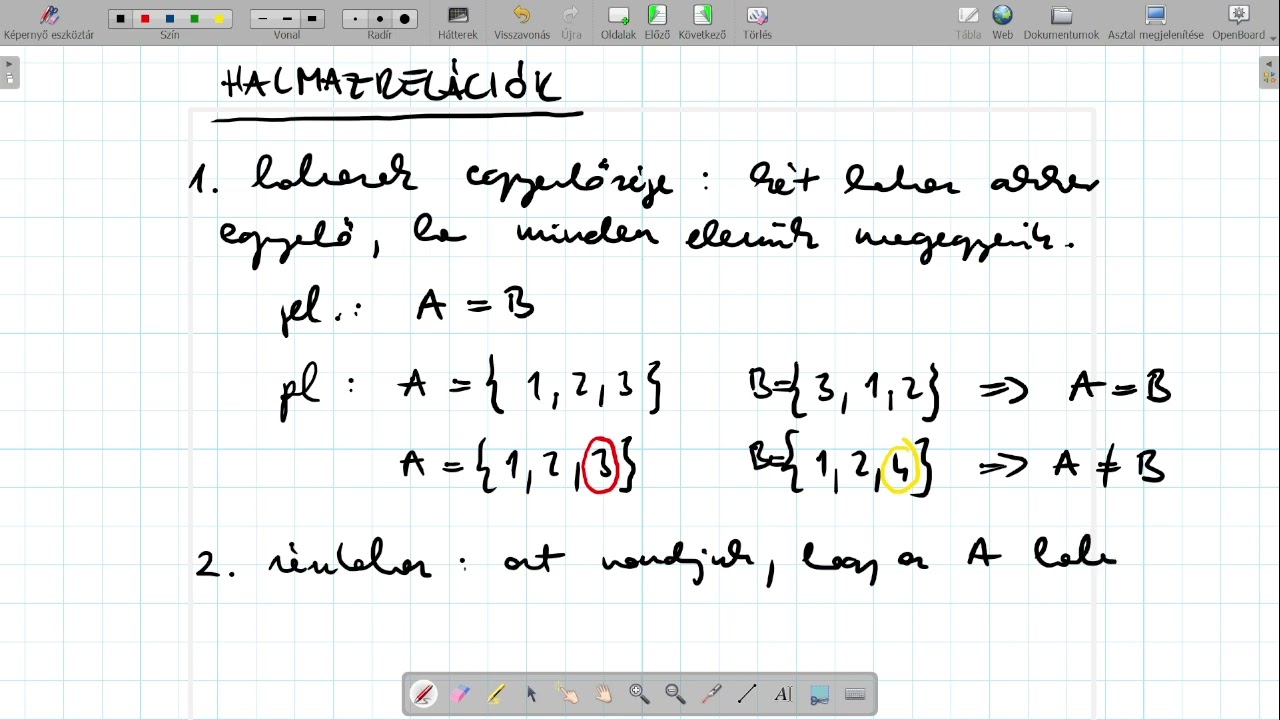 Képernyő eszköztár Szín Vonal Radír Hátterek Visszavonás Újra Oldalak Előző Következő Törlés Tábla Web Dokumentumok Asztal megjelenítése OpenBoard
HALMAZRELÁCIÓK
1. halmazok egyenlősége : két halmaz akkor
egyenlő, ha minden elemük megegyezik.
jel.: A = B
pl : A = { 1, 2, 3 } B={3, 1, 2} => A = B
A = {1, 2, 3} B={ 1, 2, 4} => A ≠ B
2. részhalmaz : azt mondjuk, hogy az A halm